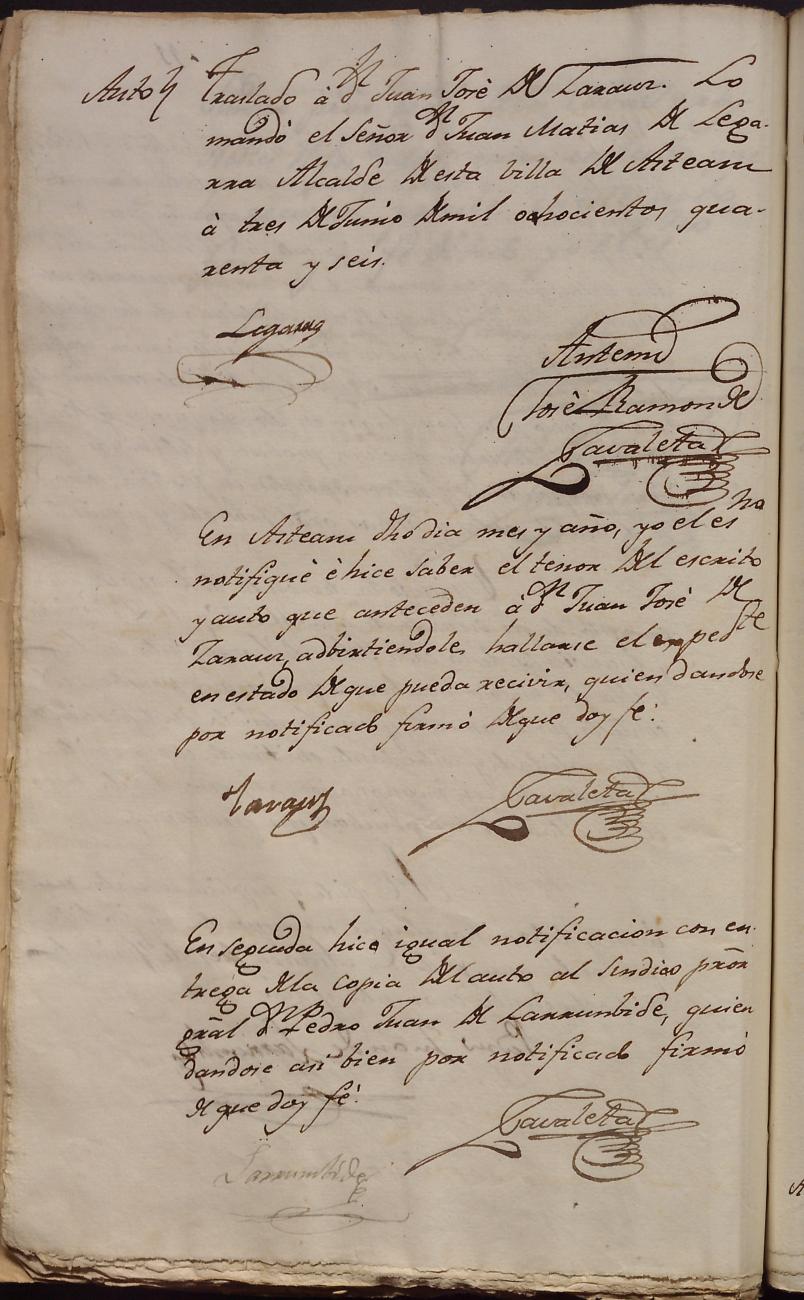 Auto
Traslado à dn Juan José de Zarauz. Lo
mandò el Señor dn Juan Matias de Lega-
rra Alcalde de esta villa de Asteasu
à tres de Junio de mil ochocientos qua-
renta y seis.
Legarra
Antemi
José Ramon de
Zavaleta
En Asteasu dho dia mes y año, yo el esno
notifiqué è hice saber el tenor del escrito
y auto que anteceden à dn Juan José de
Zarauz, adbirtiendole, hallarse el expedte
en estado de que pueda recivir, quien dandose
por notificado firmò de que doy fé.
Zarauz
Zavaleta
En seguida hice igual notificacion con en-
trega de la copia del auto al Sindico pror
gral dn Pedro Juan de Larrunbide, quien
dandose asi bien por notificado firmò
de que doy fé.
Zavaleta
Larrumbide